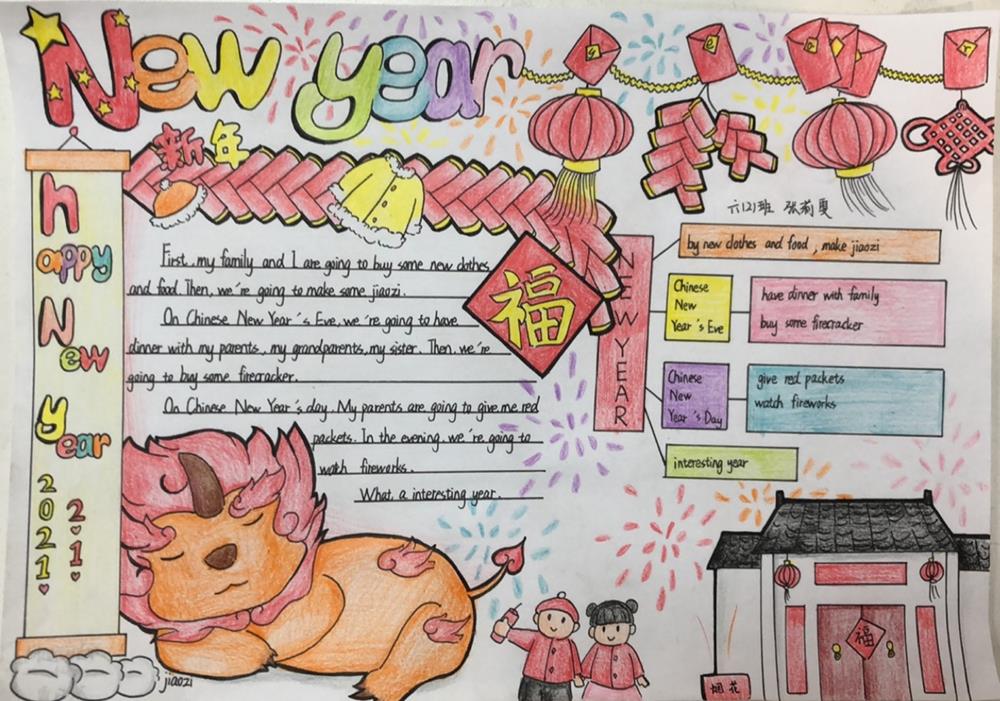 New year
新年
六(2)班 张莉
happy
New
year
2021
2.1
First, my family and I are going to buy some new clothes
and food. Then, we're going to make some jiaozi.
On Chinese New Year's Eve, we're going to have
dinner with my parents, my grandparents, my sister. Then, we're
going to buy some firecracker.
On Chinese New Year's day, My parents are going to give me red
packets. In the evening, we're going to
watch fireworks.
What a interesting year.
福
NEW YEAR
by new clothes and food , make jiaozi
Chinese
New
Year's Eve
have dinner with family
buy some firecracker
Chinese
New
Year's Day
give red packets
watch fireworks
interesting year
jiaozi
福
烟花